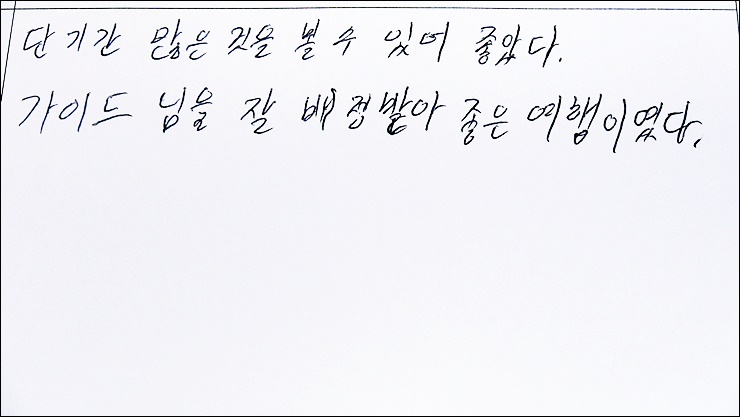 단기간 많은 것을 볼 수 있어 좋았다.
가이드 님을 잘 배정받아 좋은 여행이였다.